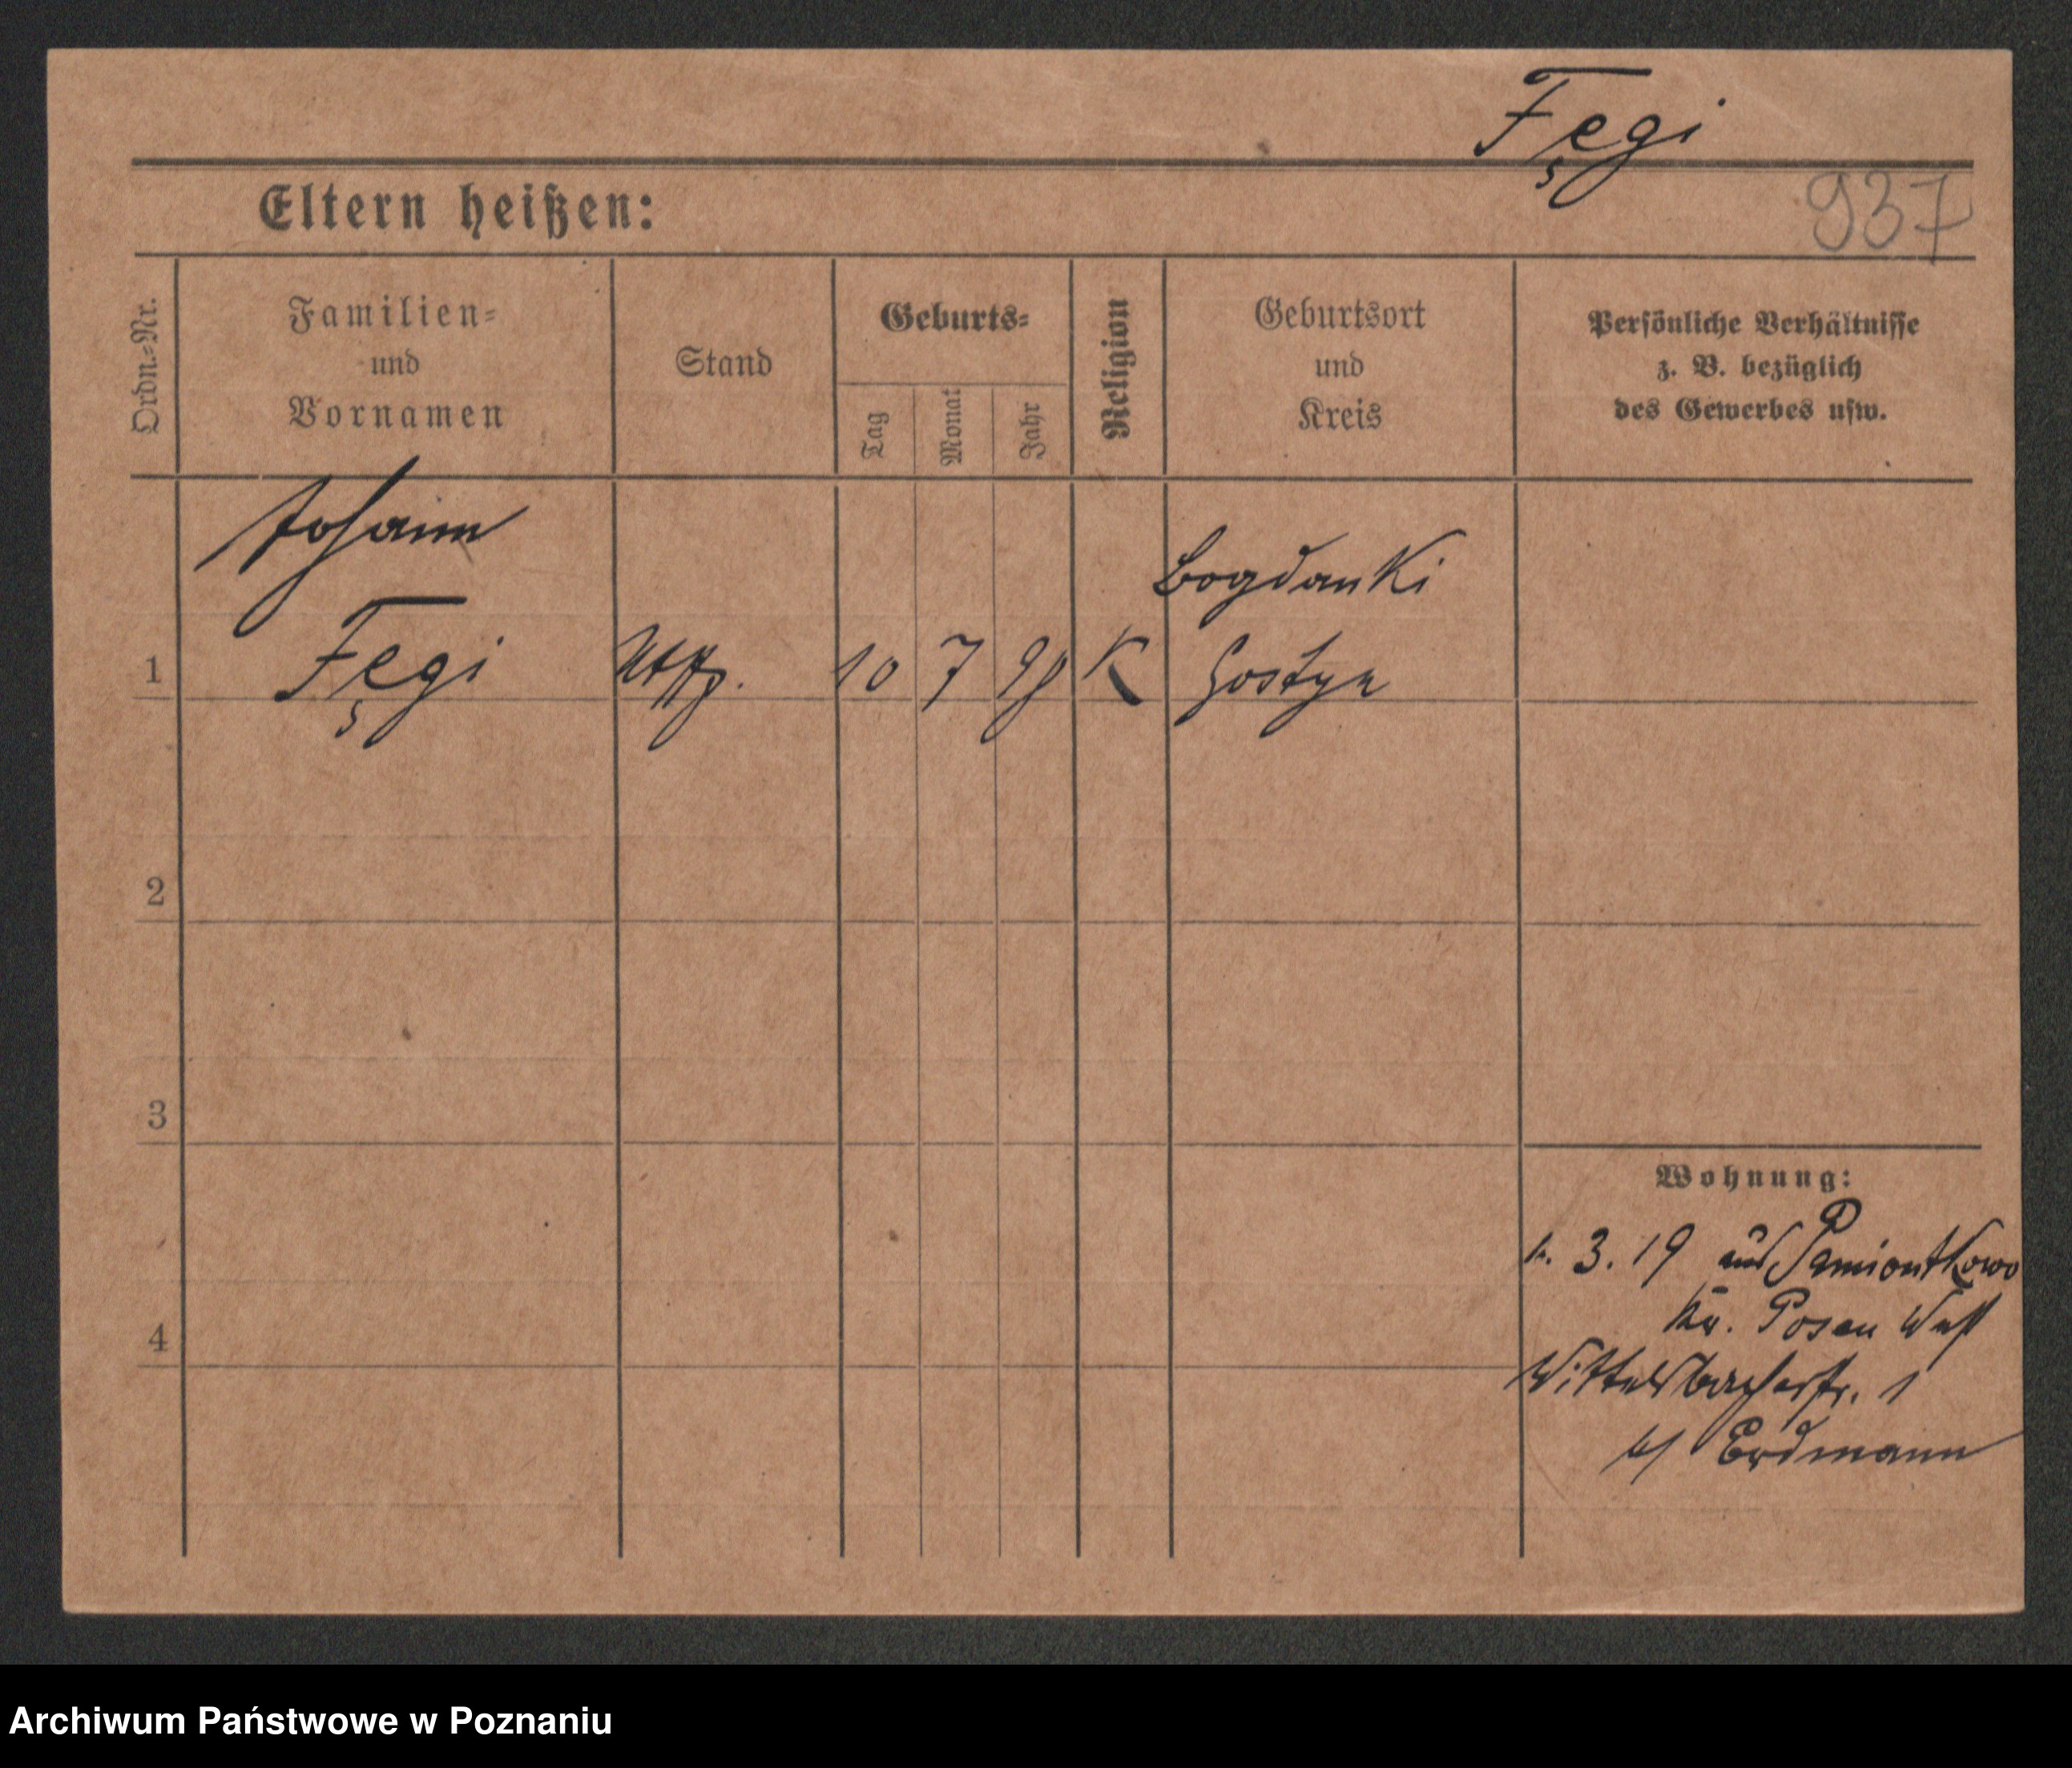 Fęgi
Eltern heißen:
937
Ordn.-Nr.
Familien-
und
Vornamen
Stand
Geburts-
Tag
Monat
Jahr
Religion
Geburtsort
und
Kreis
Persönliche Verhältnisse
z. B. bezüglich
des Gewerbes usw.
Johann
Bogdanki
1 Fęgi 10 7 98 K Gostyn
2
3
Wohnung:
3. 19 aus Pamiontkowo
Kr. Posen West
4
Wittelsbacherstr. 1
b/ Erdmann
Archiwum Państwowe w Poznaniu